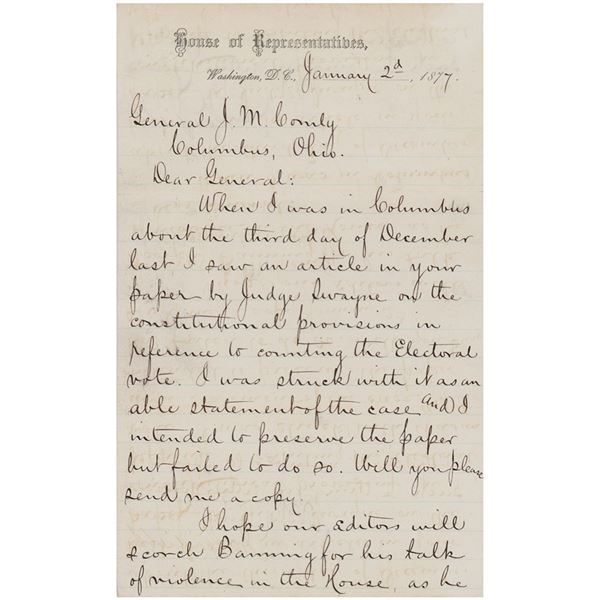 House of Representatives,
Washington, D. C., January 2d, 1877.
General J. M. Comly
Columbus, Ohio.
Dear General:
When I was in Columbus
about the third day of December
last I saw an article in your
paper by Judge Swayne on the
constitutional provisions in
reference to counting the Electoral
vote. I was struck with it as an
able statement of the case and I
intended to preserve the paper
but failed to do so. Will you please
send me a copy.
I hope our editors will
scorch Banning for his talk
of violence in the House, as he